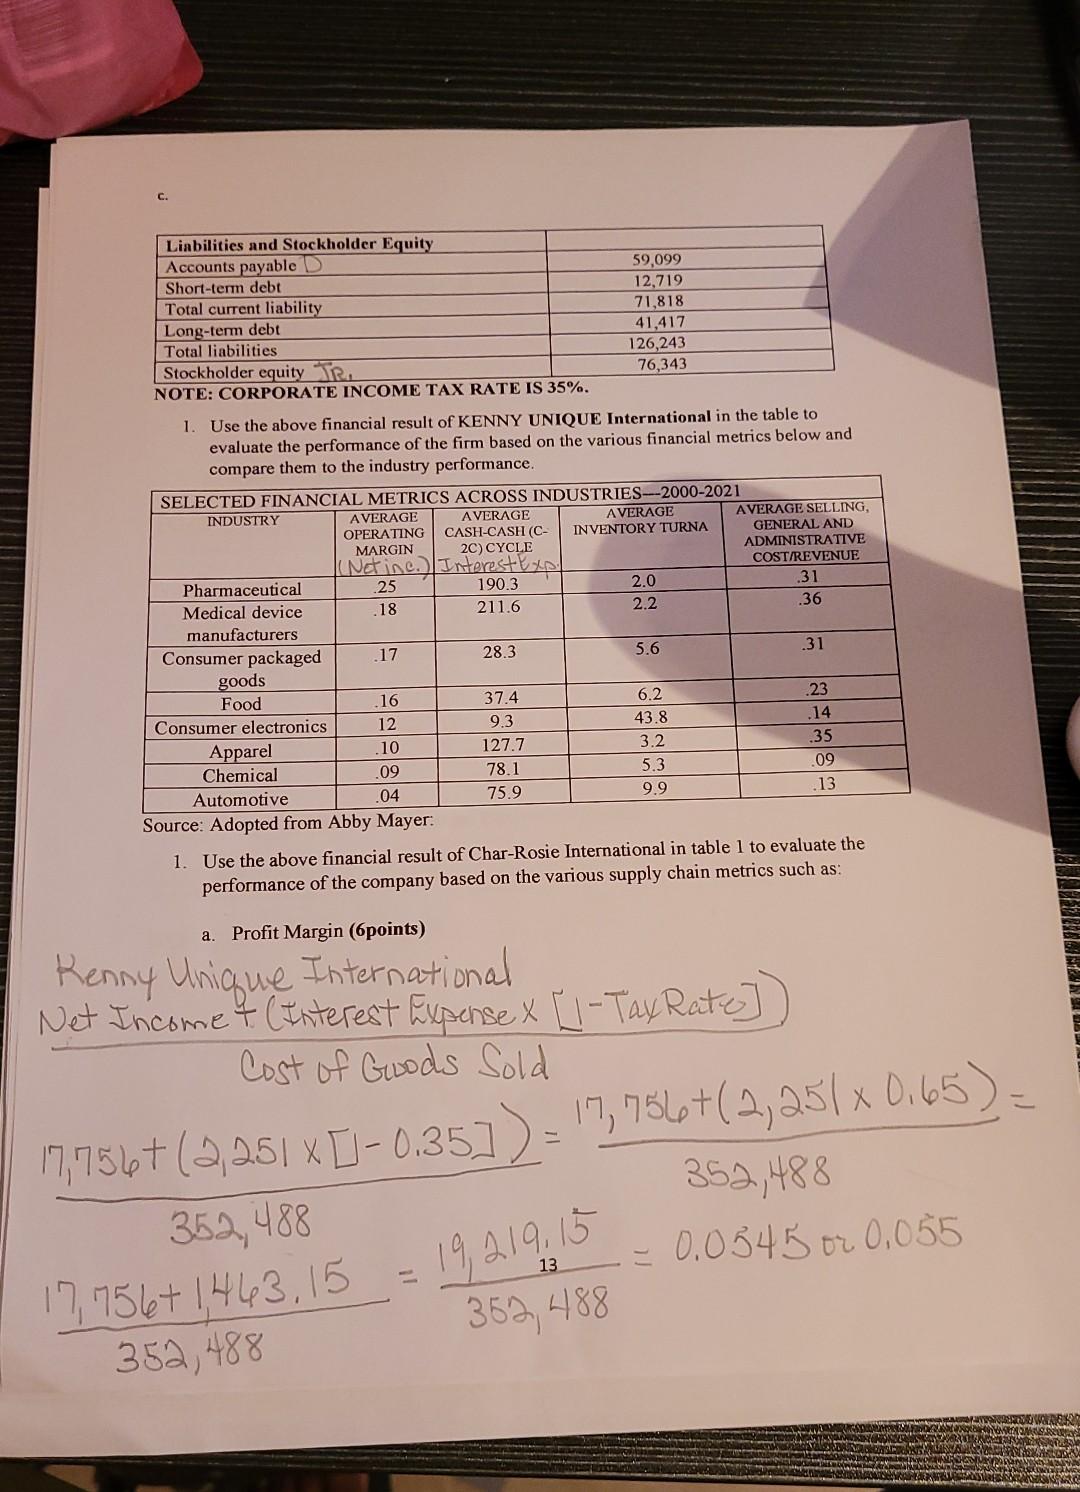 c.
Liabilities and Stockholder Equity
Accounts payable D 59,099
Short-term debt 12,719
Total current liability 71,818
Long-term debt 41,417
Total liabilities 126,243
Stockholder equity JR. 76,343
NOTE: CORPORATE INCOME TAX RATE IS 35%.
1. Use the above financial result of KENNY UNIQUE International in the table to
evaluate the performance of the firm based on the various financial metrics below and
compare them to the industry performance.
SELECTED FINANCIAL METRICS ACROSS INDUSTRIES---2000-2021
INDUSTRY AVERAGE AVERAGE AVERAGE AVERAGE SELLING,
OPERATING CASH-CASH (C- INVENTORY TURNA GENERAL AND
MARGIN 2C) CYCLE ADMINISTRATIVE
(Net inc.) Interest Exp. COST/REVENUE
Pharmaceutical .25 190.3 2.0 .31
Medical device .18 211.6 2.2 .36
manufacturers
Consumer packaged .17 28.3 5.6 .31
goods
Food .16 37.4 6.2 .23
Consumer electronics 12 9.3 43.8 .14
Apparel .10 127.7 3.2 .35
Chemical .09 78.1 5.3 .09
Automotive .04 75.9 9.9 .13
Source: Adopted from Abby Mayer:
1. Use the above financial result of Char-Rosie International in table 1 to evaluate the
performance of the company based on the various supply chain metrics such as:
a. Profit Margin (6points)
Kenny Unique International
Net Income + (Interest Expense x [1-Tax Rate])
Cost of Goods Sold
17,756+(2,251 x [1-0.35]) = 17,756+(2,251 x 0.65) =
352,488 352,488
17,756+1,463.15 = 19,219.15 = 0.0545 or 0.055
352,488 352,488
13